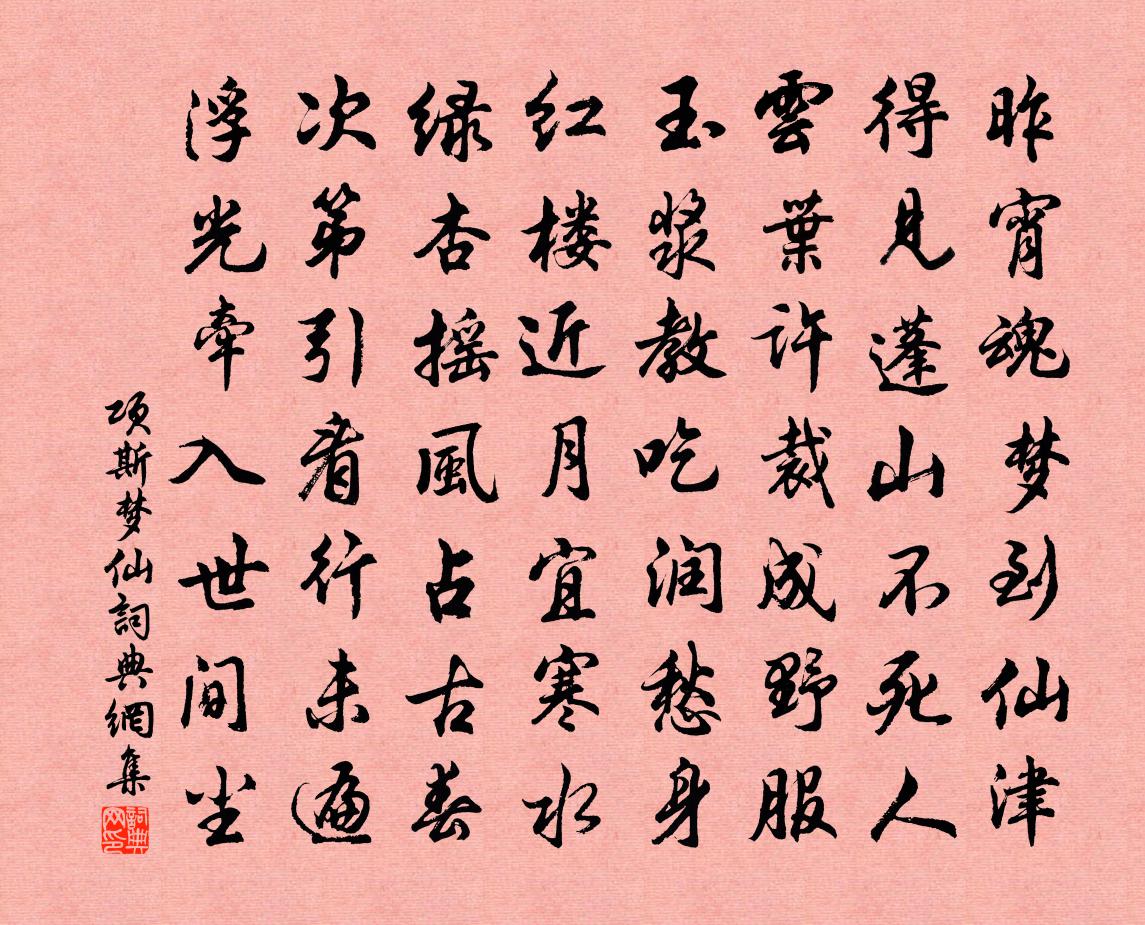 昨宵魂梦到仙津
得見蓬山不死人
雲葉許裁成野服
玉漿教吃润愁身
红楼近月宜寒水
绿杏摇風占古春
次第引看行未遍
浮光牽入世间尘
项斯梦仙詞典網集
詞典网印